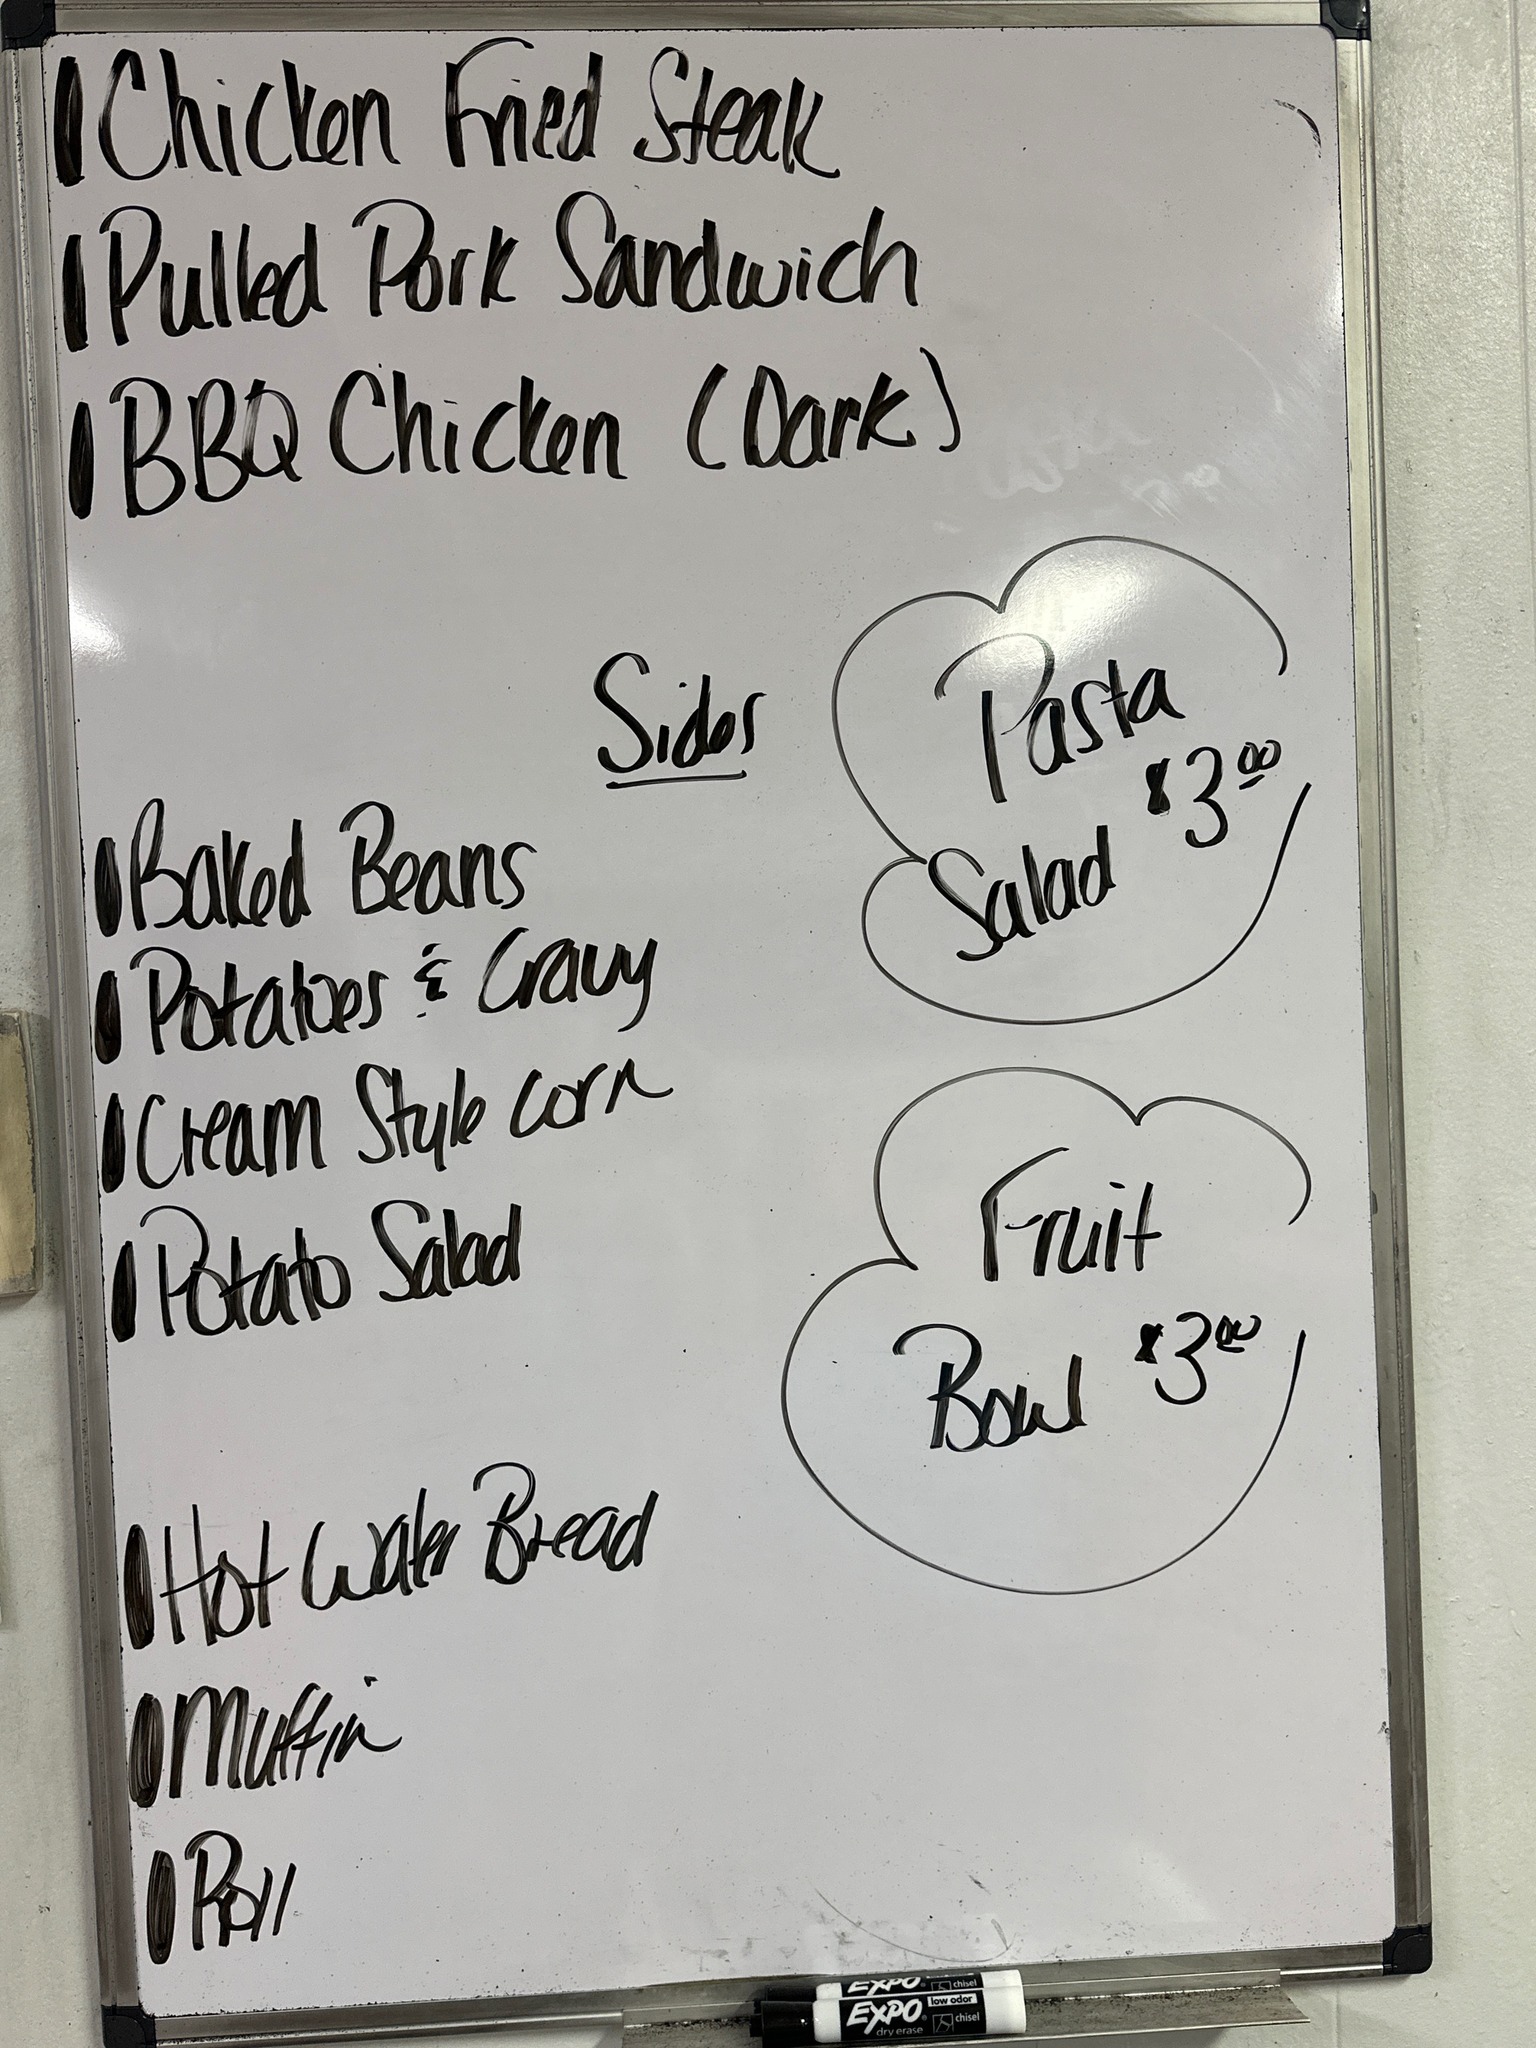 Chicken Fried Steak
Pulled Pork Sandwich
BBQ Chicken (Dark)
Sides
Baked Beans
Potatoes & Gravy
Cream Style Corn
Potato Salad
Pasta
Salad $3.00
Fruit
Bowl $3.00
Hot Water Bread
Muffin
Roll
EXPO chisel
EXPO low odor
dry erase chisel